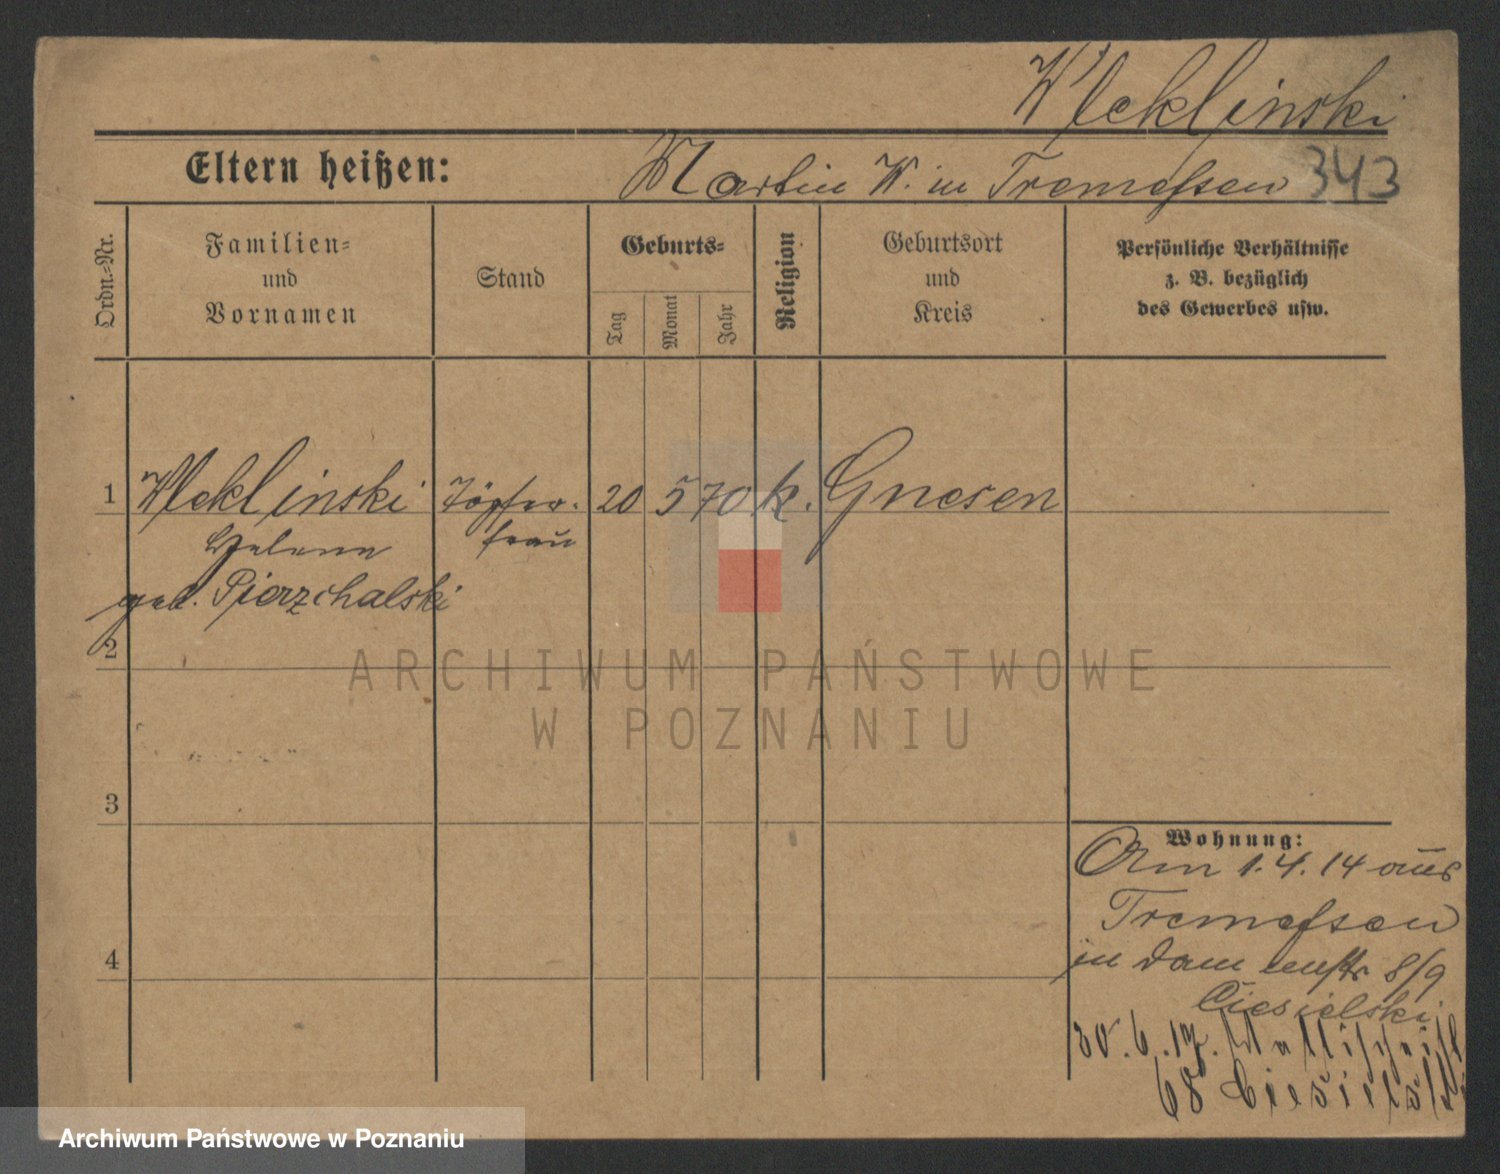 Wleklinski
Eltern heißen: Martin W. in Tremessen 343
Ordn.=Nr.
Familien=
und
Vornamen
Stand
Geburts=
Tag
Monat
Jahr
Religion
Geburtsort
und
Kreis
Persönliche Verhältnisse
z. B. bezüglich
des Gewerbes usw.
1 Wleklinski Töpfer- 20 5 70 k. Gnesen
Helene frau
geb. Pierzchalski
2
3
4
Wohnung:
Am 1.4.14 aus
Tremessen
in 8/9
Ciesielski
30.6.17.
68 Ciesielski
ARCHIWUM PAŃSTWOWE
W POZNANIU
Archiwum Państwowe w Poznaniu